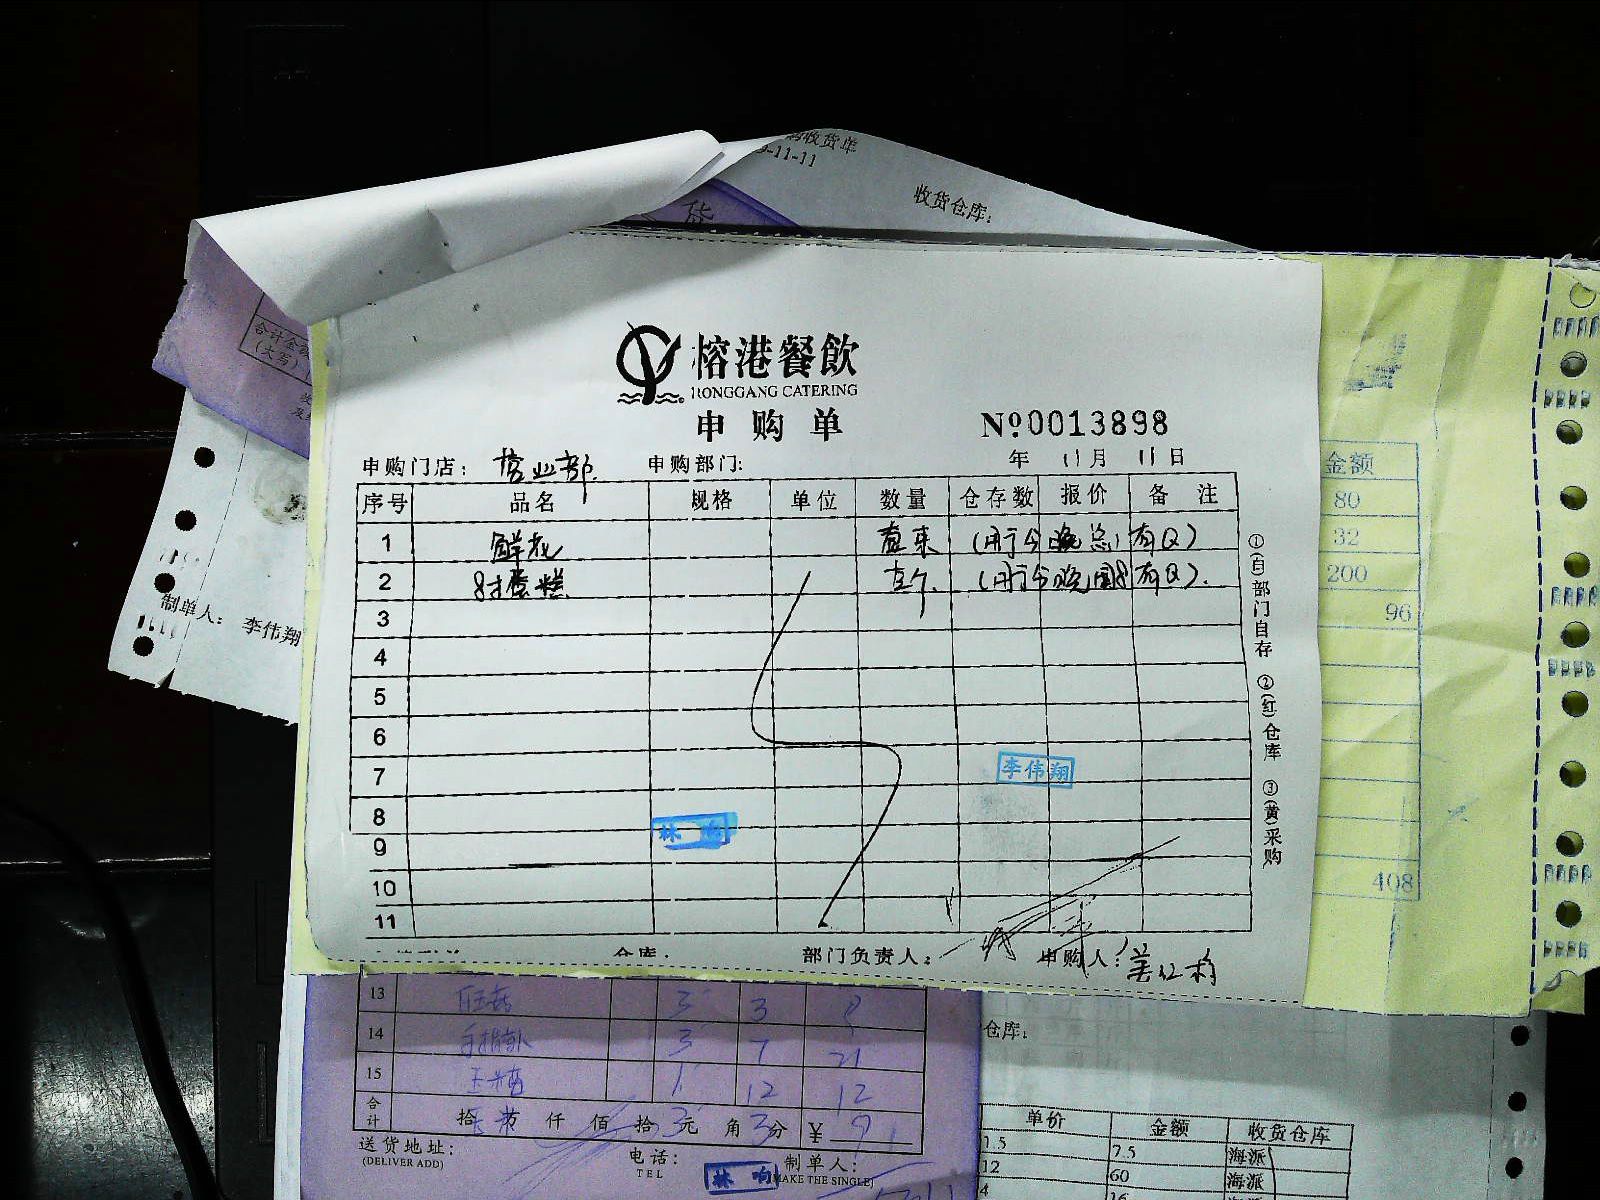 购收货单
-11-11
收货仓库:
货
合计金
(大写)
制单人: 李伟翔
榕港餐飲
RONGGANG CATERING
申购单
Nº0013898
申购门店: 营业部. 申购部门: 年 11月 11日
序号 品名 规格 单位 数量 仓存数 报价 备 注
1 鲜花 壹束 (用于今晚总 有Q)
2 8寸蛋糕 (用于今晚 有Q).
3
4
5
6
7 李伟翔
8 林 响
9
10
11
仓库: 部门负责人: 申购人: 姜
①(白)部门自存 ②(红)仓库 ③(黄)采购
金额
80
32
200
96
408
13 3 3
14 3 7 21
15 1 12 12
合计 拾 万 仟 佰 拾 元 角 分 ¥
送货地址:
(DELIVER ADD)
电话:
TEL
林 响
制单人:
(MAKE THE SINGLE)
仓库:
单价 金额 收货仓库
1.5 7.5 海派
12 60 海派
4 16